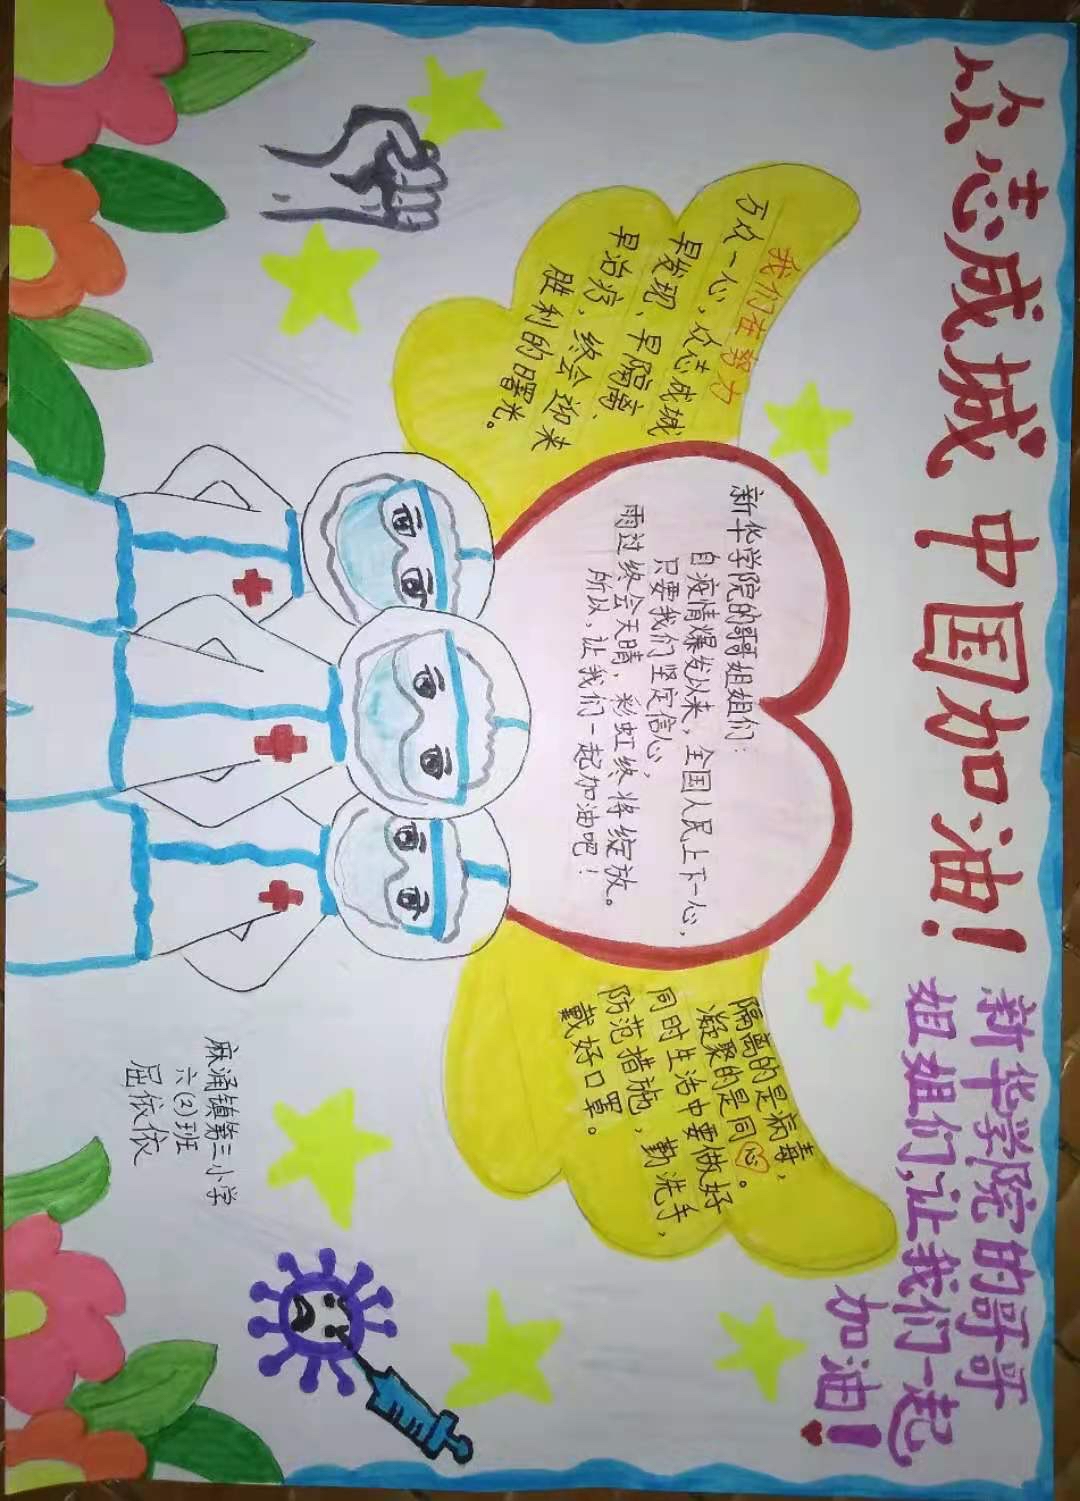 众志成城 中国加油！
新华学院的哥哥
姐姐们，让我们一起
加油！
我们在努力
万众一心，众志成城
早发现、早隔离、
早治疗，终会迎来
胜利的曙光。
新华学院的哥哥姐姐们：
自疫情爆发以来，全国人民上下一心，
只要我们坚定信心，
雨过终会天晴，彩虹终将绽放。
所以，让我们一起加油吧！
隔离的是病毒，
凝聚的是同心。
同时生活中要做好
防范措施，勤洗手，
戴好口罩。
麻涌镇第三小学
六(2)班
屈依依